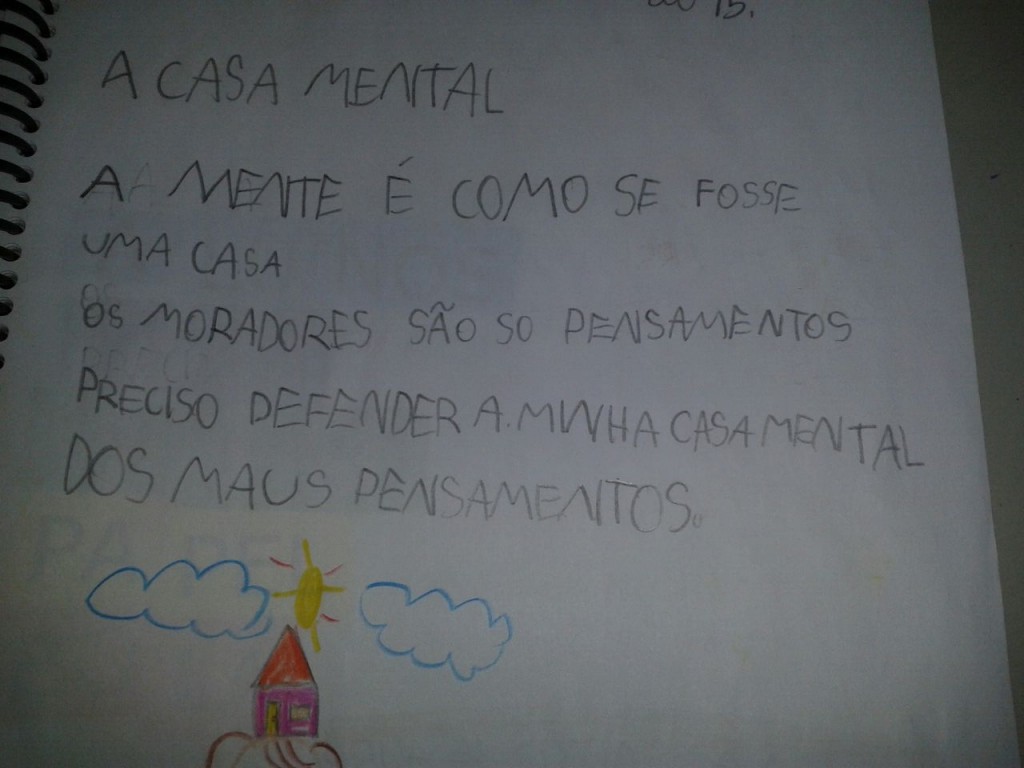 15.
A CASA MENTAL
A MENTE É COMO SE FOSSE
UMA CASA
OS MORADORES SÃO SO PENSAMENTOS
PRECISO DEFENDER A MINHA CASA MENTAL
DOS MAUS PENSAMENTOS.